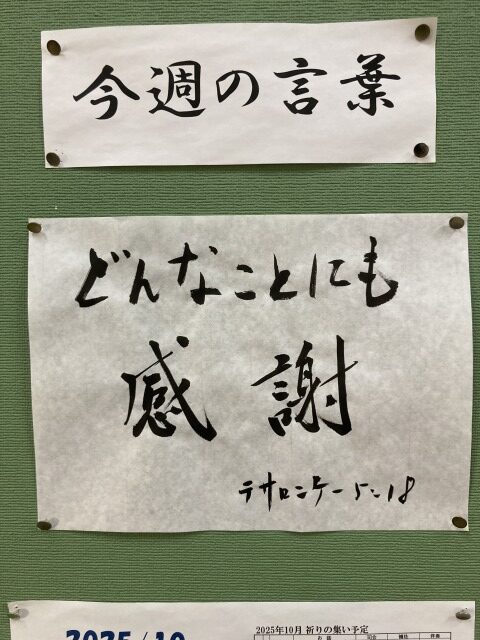 今週の言葉
どんなことにも
感謝
テサロニケ一 5:18
2025/10
2025年10月 祈りの集い予定